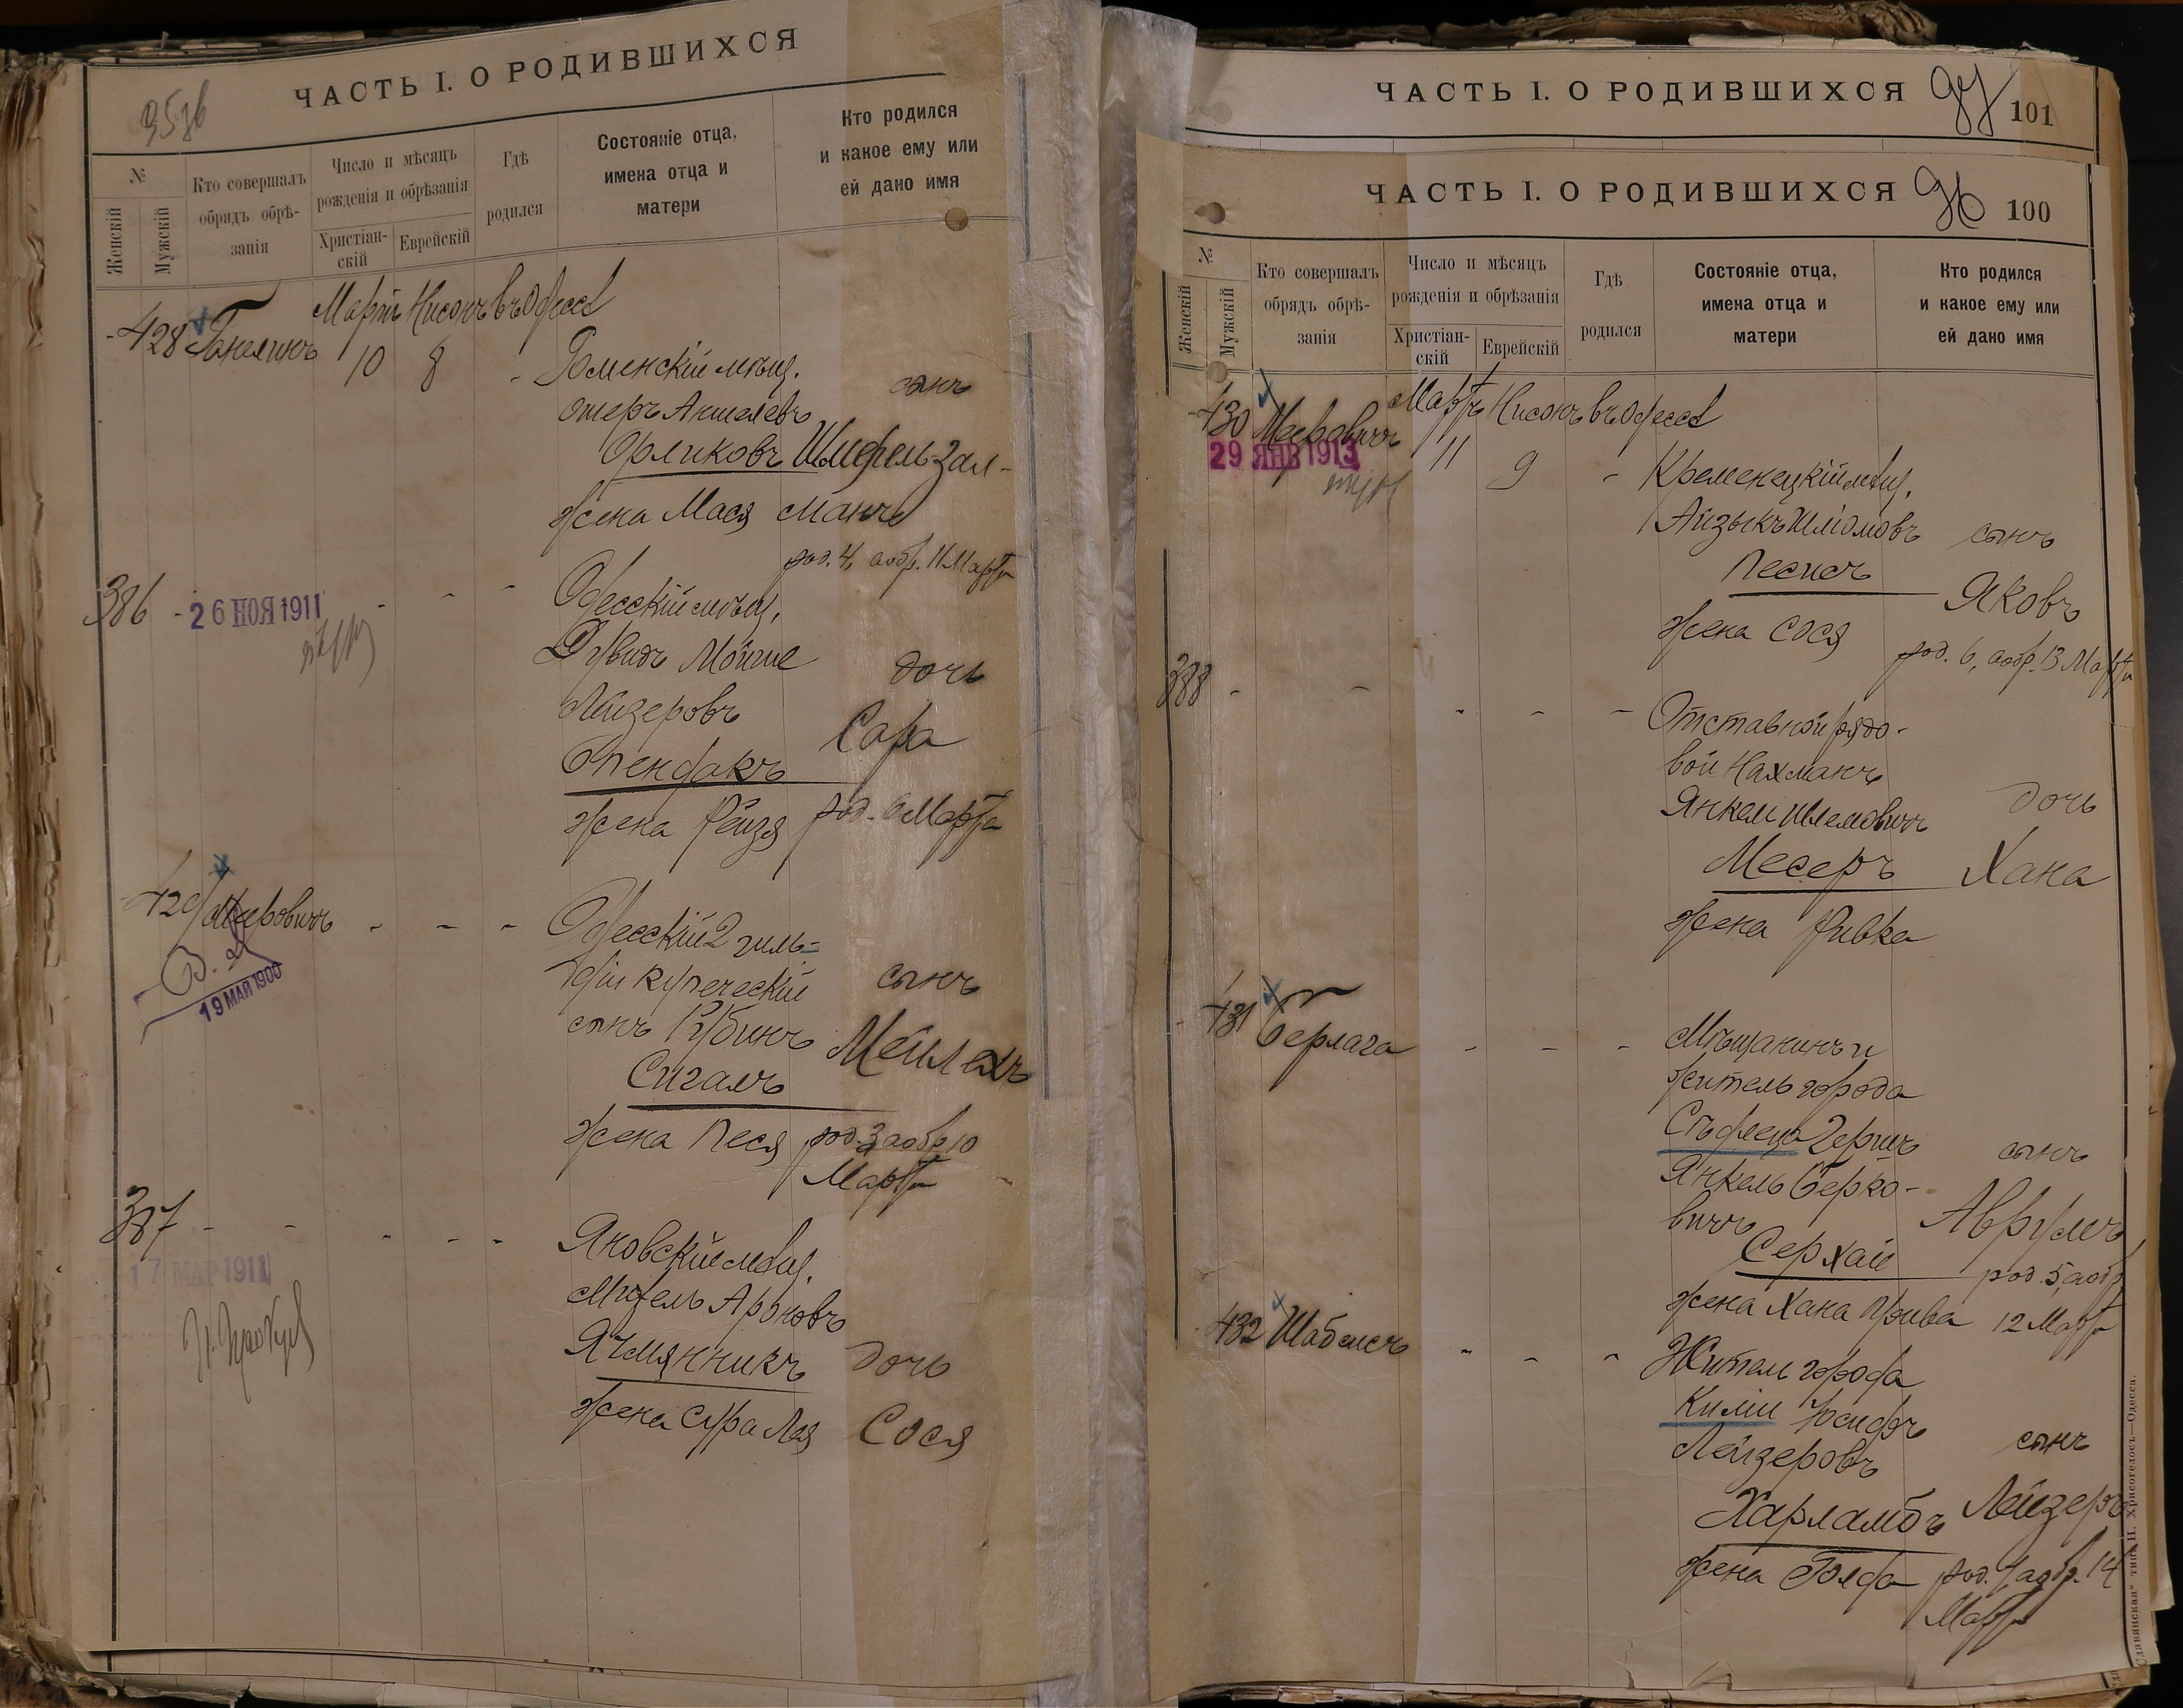 ЧАСТЬ I. О РОДИВШИХСЯ
№
Женскій
Мужскій
Кто совершалъ
обрядъ обрѣ-
занія
Число и мѣсяцъ
рожденія и обрѣзанія
Христіан-
скій
Еврейскій
Гдѣ
родился
Состояніе отца,
имена отца и
матери
Кто родился
и какое ему или
ей дано имя
Мартъ Нисонъ въ Одессѣ
428 Ганелинъ 10 8 -
Роменскій мѣщ.
Ошеръ Аншелевъ
Орликовъ
жена Мася
сынъ
Шмерель-Зал-
манъ
род. 4, а обр. 11 Марта
386 - - - -
26 НОЯ 1911
Одесскій мѣщ.
Дувидъ Мойше
Лейзеровъ
Опендакъ
жена Рейзя
дочь
Сара
род. 6 Марта
429 Меровичъ - - -
19 МАЙ 1900
Одесскій 2 гиль-
діи купеческій
сынъ Рубинъ
Сигалъ
жена Песя
сынъ
Мейлехъ
род. 3 а обр. 10
Марта
387 - - - - -
17 МАР 1911
Яновскій мѣщ.
Ароновъ
Ячмянникъ
жена Сура Лея
дочь
Сося
ЧАСТЬ I. О РОДИВШИХСЯ 97 101
ЧАСТЬ I. О РОДИВШИХСЯ 96 100
№
Женскій
Мужскій
Кто совершалъ
обрядъ обрѣ-
занія
Число и мѣсяцъ
рожденія и обрѣзанія
Христіан-
скій
Еврейскій
Гдѣ
родился
Состояніе отца,
имена отца и
матери
Кто родился
и какое ему или
ей дано имя
Мартъ Нисонъ въ Одессѣ
430 Меровичъ 11 9 -
29 ЯНВ 1913
Кременецкій мѣщ.
Айзыкъ Шліомовъ
Песисъ
жена Сося
сынъ
Яковъ
род. 6, а обр. 13 Марта
388 - - - - -
Отставной рядо-
вой Нахманъ
Янкель Шлемовичъ
Месеръ
жена Ривка
дочь
Хана
431 Берлага - - -
Мѣщанинъ и
житель города
Гершъ
Янкель Берко-
вичъ
Серхай
жена Хана
сынъ
Аврумъ
род. 5, а обр.
12 Марта
432 - - -
Житель города
Киліи Іосифъ
Лейзеровъ
Харламбъ
жена Голда
сынъ
Лейзеръ
род. 7 а обр. 14
Марта
„Славянская“ тип. Н. Хрисогелосъ—Одесса.